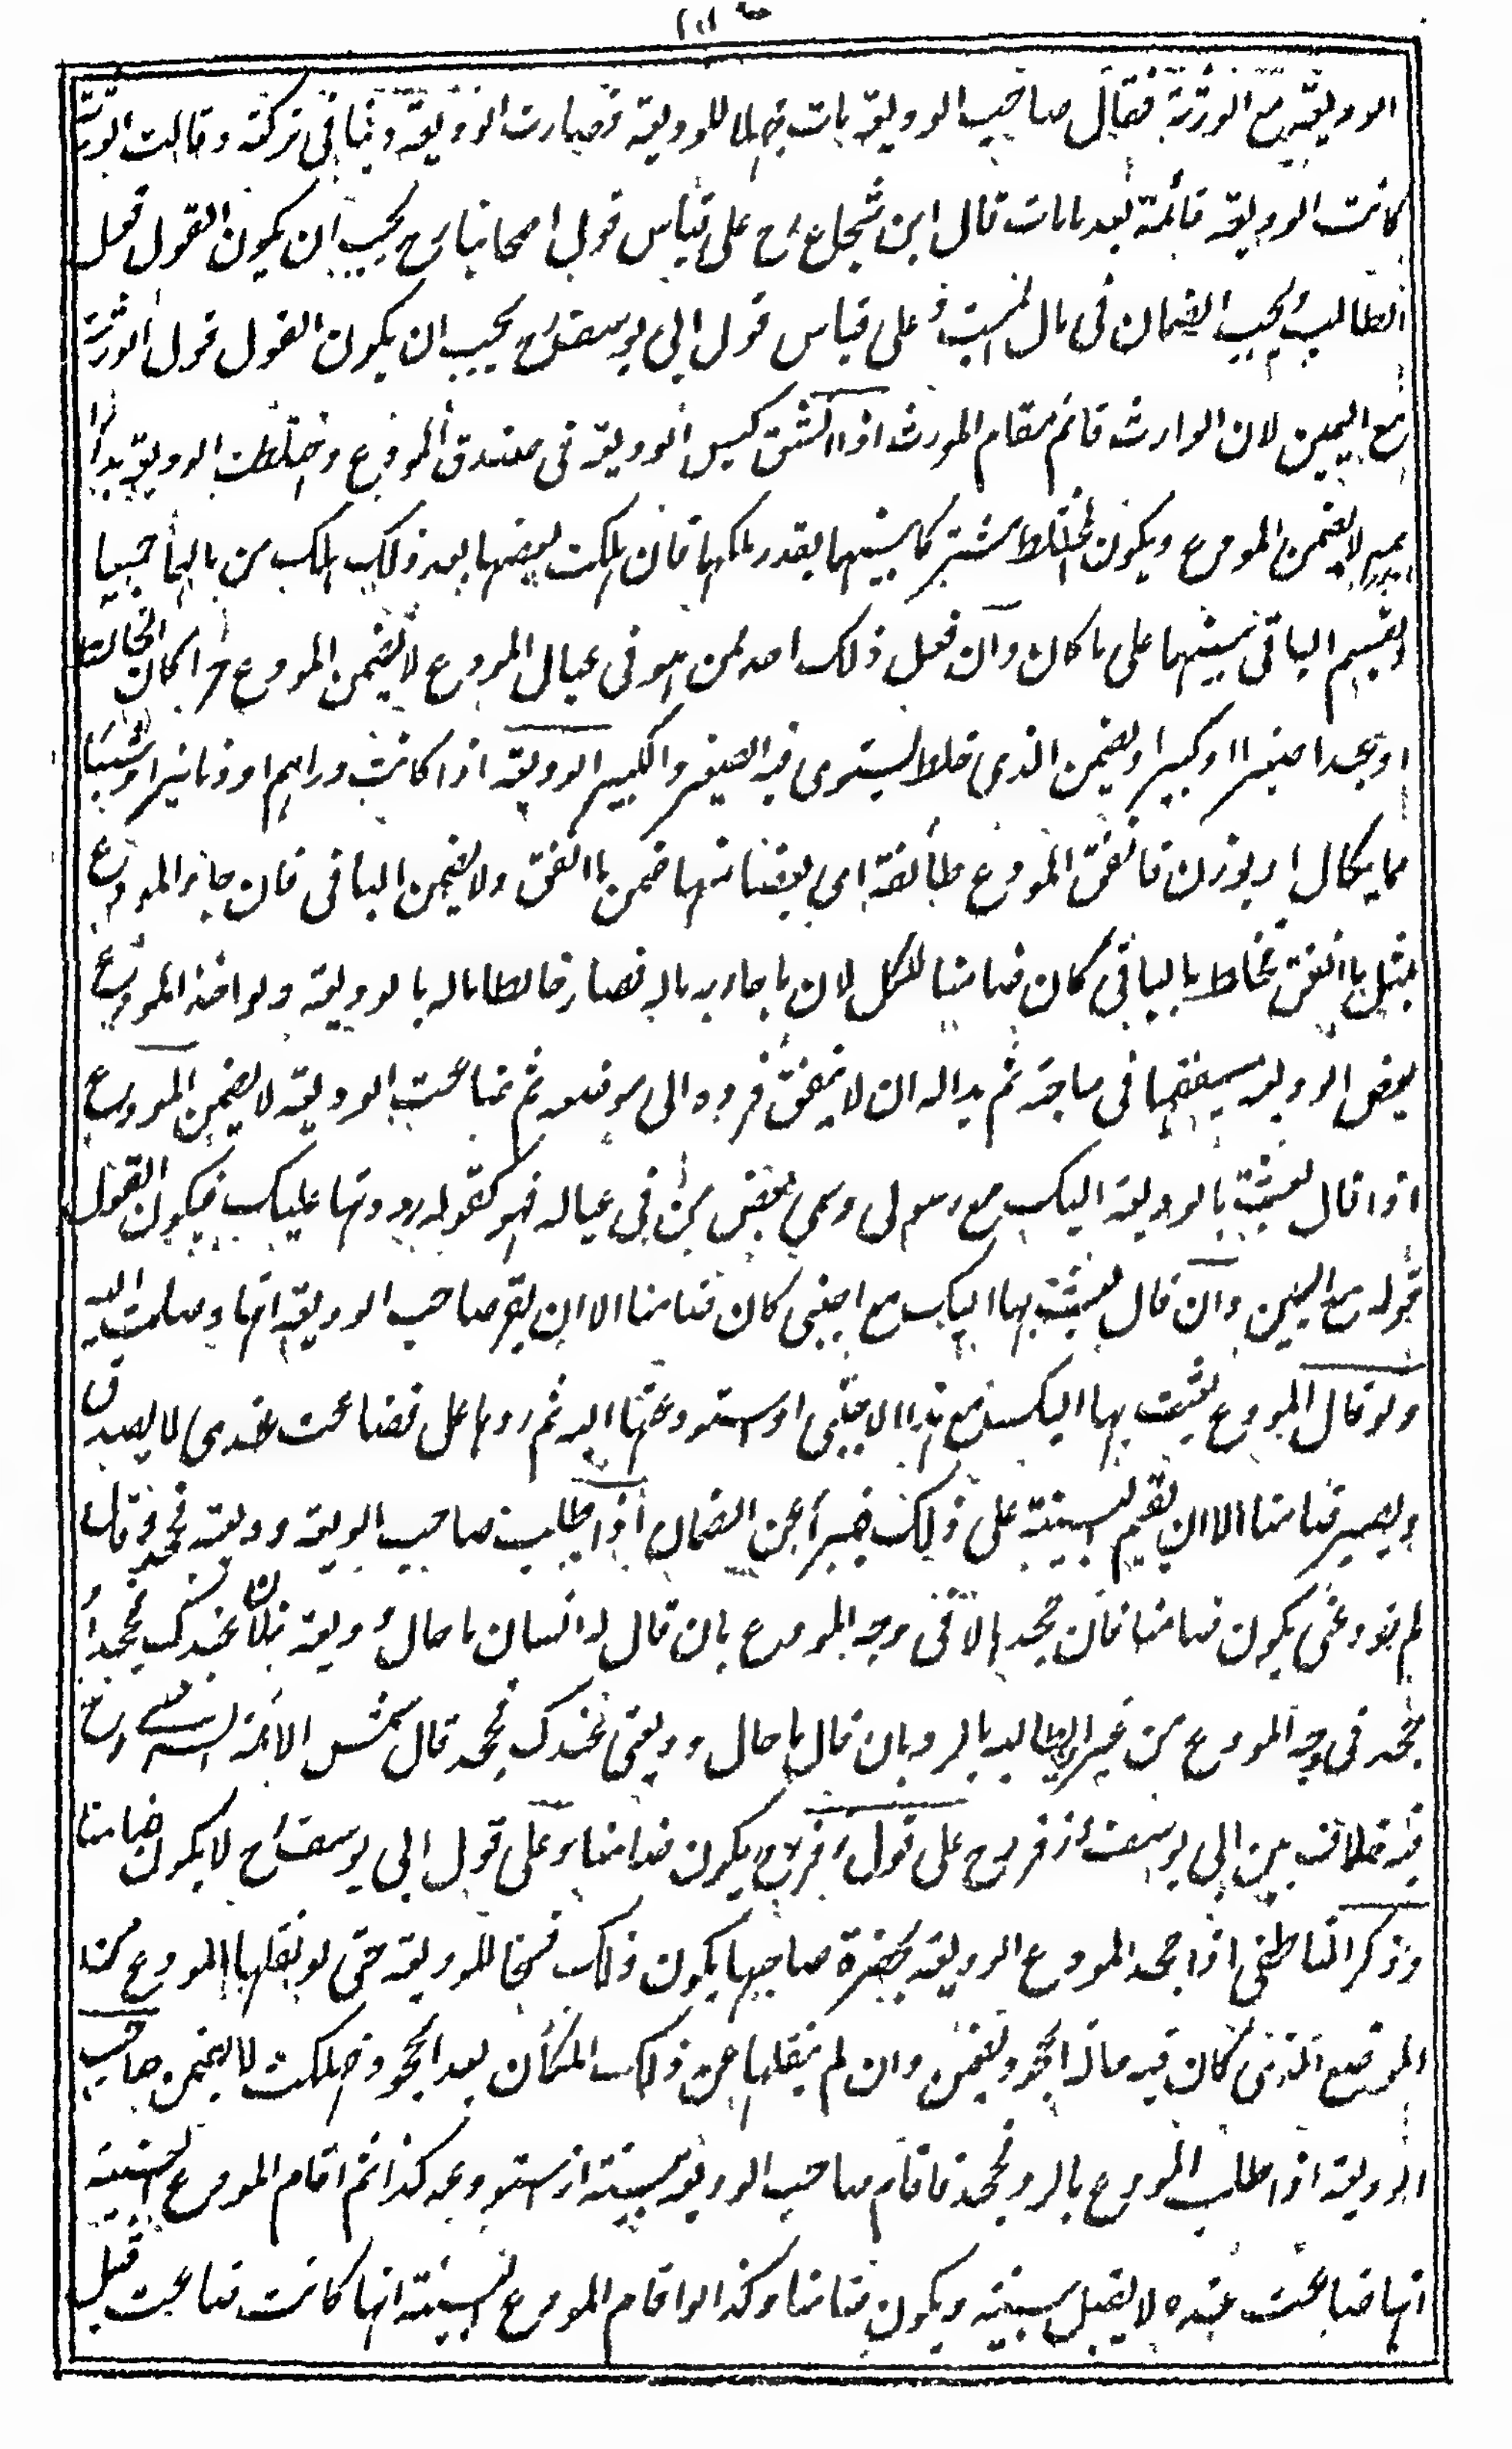 الوديعة مع الورثة فقال صاحب الوديعة مات مجهلا للوديعة فصارت الوديعة دينا في تركته وقالت الورثة
كانت الوديعة قائمة يوم مات قال ابن شجاع رح على قياس قول اصحابنا رح يجب ان يكون القول قول
الطالب ويجب الضمان فى مال الميت وعلى قياس قول ابي يوسف رح يجب ان يكون القول قول الورثة
مع اليمين لان الوارث قائم مقام المورث اذا انشق كيس الوديعة فى صندق المودع واختلطت الوديعة بدراهم
لا يضمن المودع ويكون المختلط مشتركا بينهما بقدر ملكهما فان هلكت بعضها بعد ذلك هلك من مالهما جميعا
ويقسم الباقى بينهما على ما كان وان فعل ذلك احد ممن هو فى عيال المودع لا يضمن المودع حرا كان الخالط
او عبدا صغيرا او كبيرا ويضمن الذى خلط يستوى فيه الصغير والكبير الوديعة اذا كانت دراهم او دنانير او شيئا
مما يكال او يوزن فانفق المودع طائفة اى بعضا منها ضمن ما انفق ولا يضمن الباقى فان جاء المودع
بمثل ما انفق فخلط بالباقى كان ضامنا للكل لان ما جاء به ماله فصار خالطا ماله بالوديعة ولو اخذ المودع
بعض الوديعة لينفقها فى حاجته ثم بدا له ان لا ينفق فرده الى موضعه ثم ضاعت الوديعة لا يضمن المودع
اذا قال بعثت بالوديعة اليك مع رسولى وسمى بعض من فى عياله فهو كقوله رددتها عليك فيكون القول
قوله مع اليمين وان قال بعثت بها اليك مع اجنبى كان ضامنا الا ان يقر صاحب الوديعة انها وصلت اليه
ولو قال المودع بعثت بها اليك مع هذا الاجنبى او استودعتها اليه ثم ردها على فضاعت عندى لا يصدق
ويصير ضامنا الا ان يقيم البينة على ذلك فيبرأ عن الضمان اذا طلب صاحب الوديعة وديعته فجحد وقال
لم تودعنى يكون ضامنا فان جحد لا فى وجه المودع بان قال له انسان ما حال وديعة فلان عندك فجحد او
جحد فى وجه المودع من غير ان يطالبه بالرد بان قال ما حال وديعتى عندك فجحد قال شمس الائمة السرخسى رح
فيه خلاف بين ابى يوسف وزفر رح على قول زفر رح يكون ضامنا وعلى قول ابى يوسف رح لا يكون ضامنا
وذكر الناطفى اذا جحد المودع الوديعة بحضرة صاحبها يكون ذلك فسخا للوديعة حتى لو نقلها المودع من
الموضع الذى كان فيه حالة الجحود يضمن وان لم ينقلها عن ذلك المكان بعد الجحود فهلكت لا يضمن صاحب
الوديعة اذا طلب المودع بالرد فجحد فاقام صاحب الوديعة بينة انه استودعه كذا ثم اقام المودع البينة
انها ضاعت عنده لا يقبل بينته ويكون ضامنا وكذا لو اقام المودع البينة انها كانت ضاعت قبل